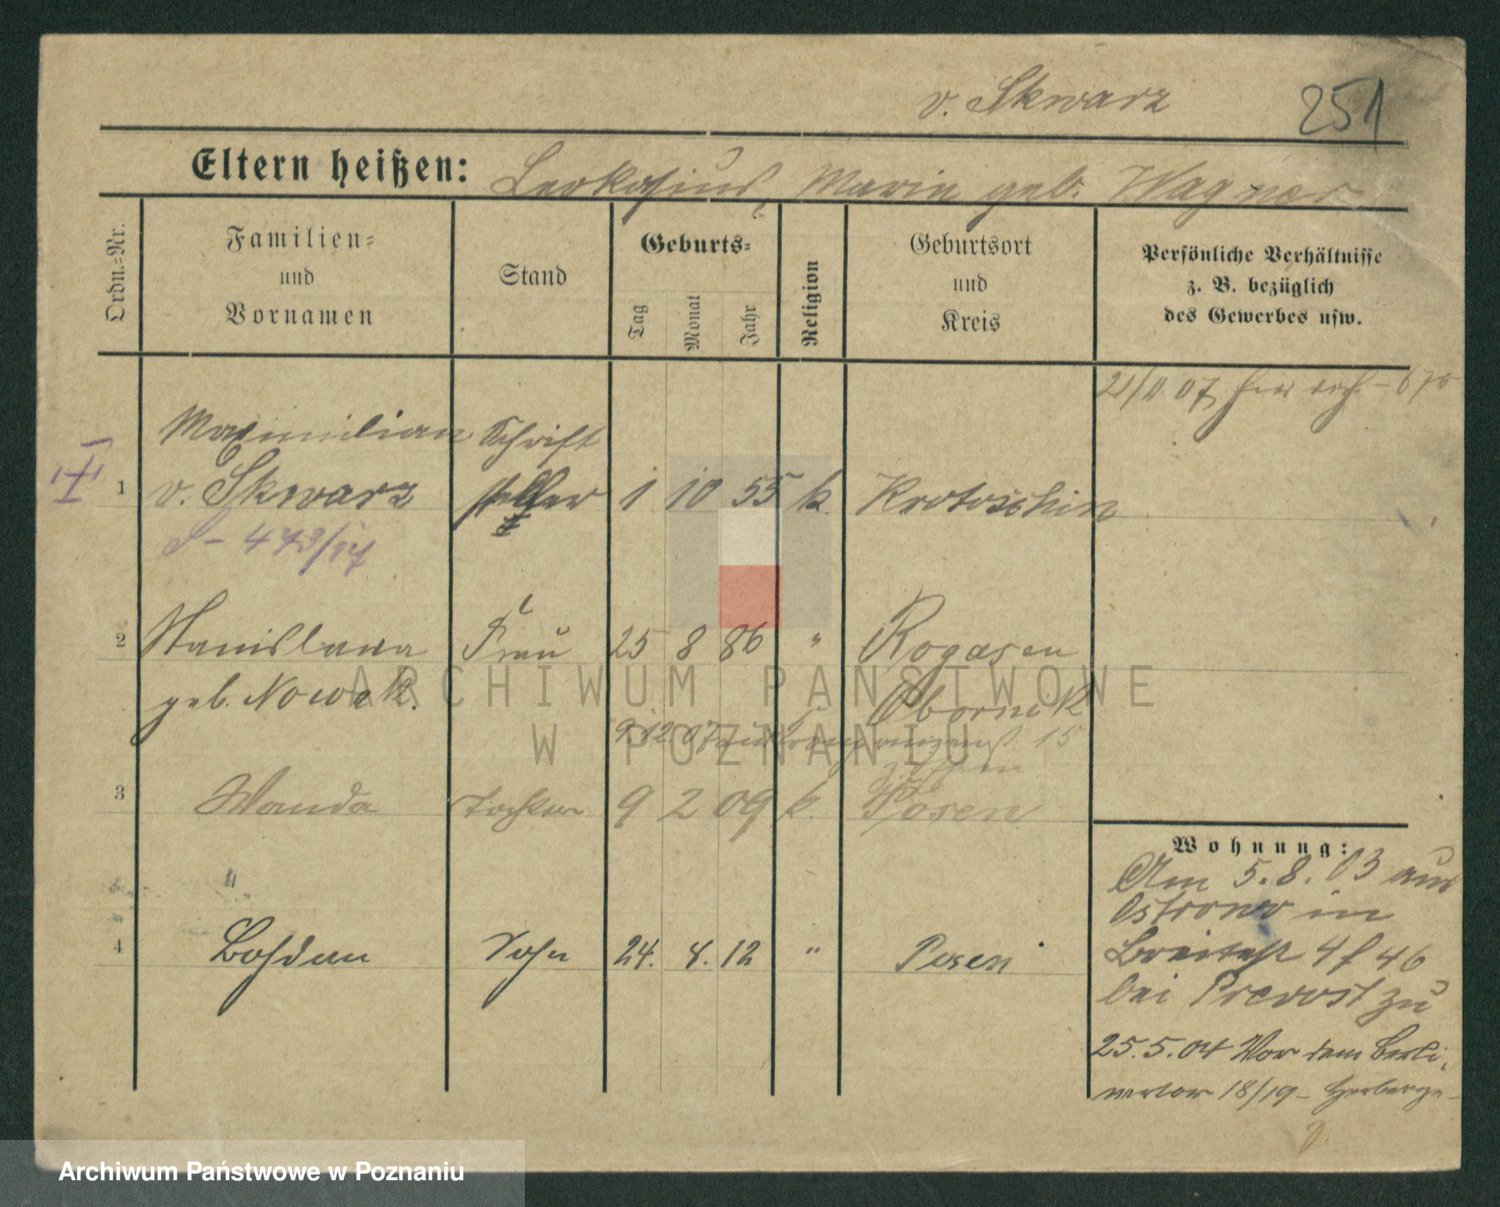 v. Skwarz 251
Eltern heißen: Marie geb. Wagner
Ordn.=Nr.
Familien=
und
Vornamen
Stand
Geburts=
Tag
Monat
Jahr
Religion
Geburtsort
und
Kreis
Persönliche Verhältnisse
z. B. bezüglich
des Gewerbes usw.
07
Maximilian Schrift
1 v. Skwarz steller 1 10 55 k. Krotoschin
473/17
2 Stanislawa Frau 25 8 86 " Rogasen
geb. Nowak. Obornik
9.12.07 15
3 Wanda Tochter 9 2 09 k. Posen
4 Bohdan Sohn 24. 8. 12 " Posen
Wohnung:
Am 5.8.03 aus
Ostrowo in
Breitestr 4 46
bei Prevost zu
25.5.04 Vor dem Berli-
nertor 18/19 - Herberge -
ARCHIWUM PAŃSTWOWE
W POZNANIU
Archiwum Państwowe w Poznaniu